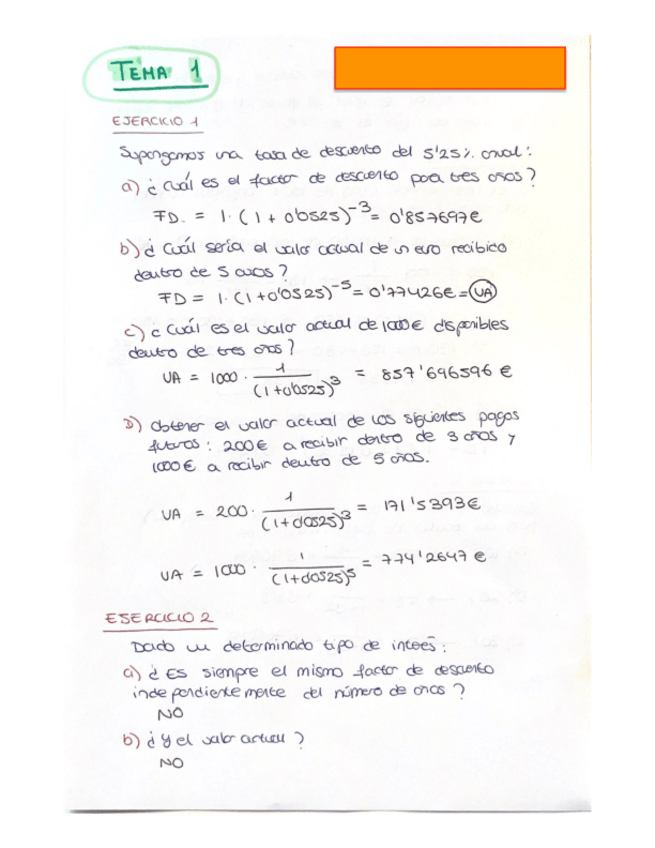 TEMA 1
EJERCICIO 1
Supongamos una tasa de descuento del 5'25% anual:
a) ¿Cuál es el factor de descuento para tres años?
FD = 1 · (1 + 0'0525)^-3 = 0'857697€
b) ¿Cuál sería el valor actual de un euro recibido
dentro de 5 años?
FD = 1 · (1 + 0'0525)^-5 = 0'77426€ = UA
c) ¿Cuál es el valor actual de 1000€ disponibles
dentro de tres años?
UA = 1000 · 1 / (1+0'0525)^3 = 857'696596 €
D) Obtener el valor actual de los siguientes pagos
futuros: 200€ a recibir dentro de 3 años y
1000€ a recibir dentro de 5 años.
UA = 200 · 1 / (1+0'0525)^3 = 171'5393€
UA = 1000 · 1 / (1+0'0525)^5 = 774'2647 €
EJERCICIO 2
Dado un determinado tipo de interés:
a) ¿Es siempre el mismo factor de descuento
independientemente del número de años?
NO
b) ¿Y el valor actual?
NO